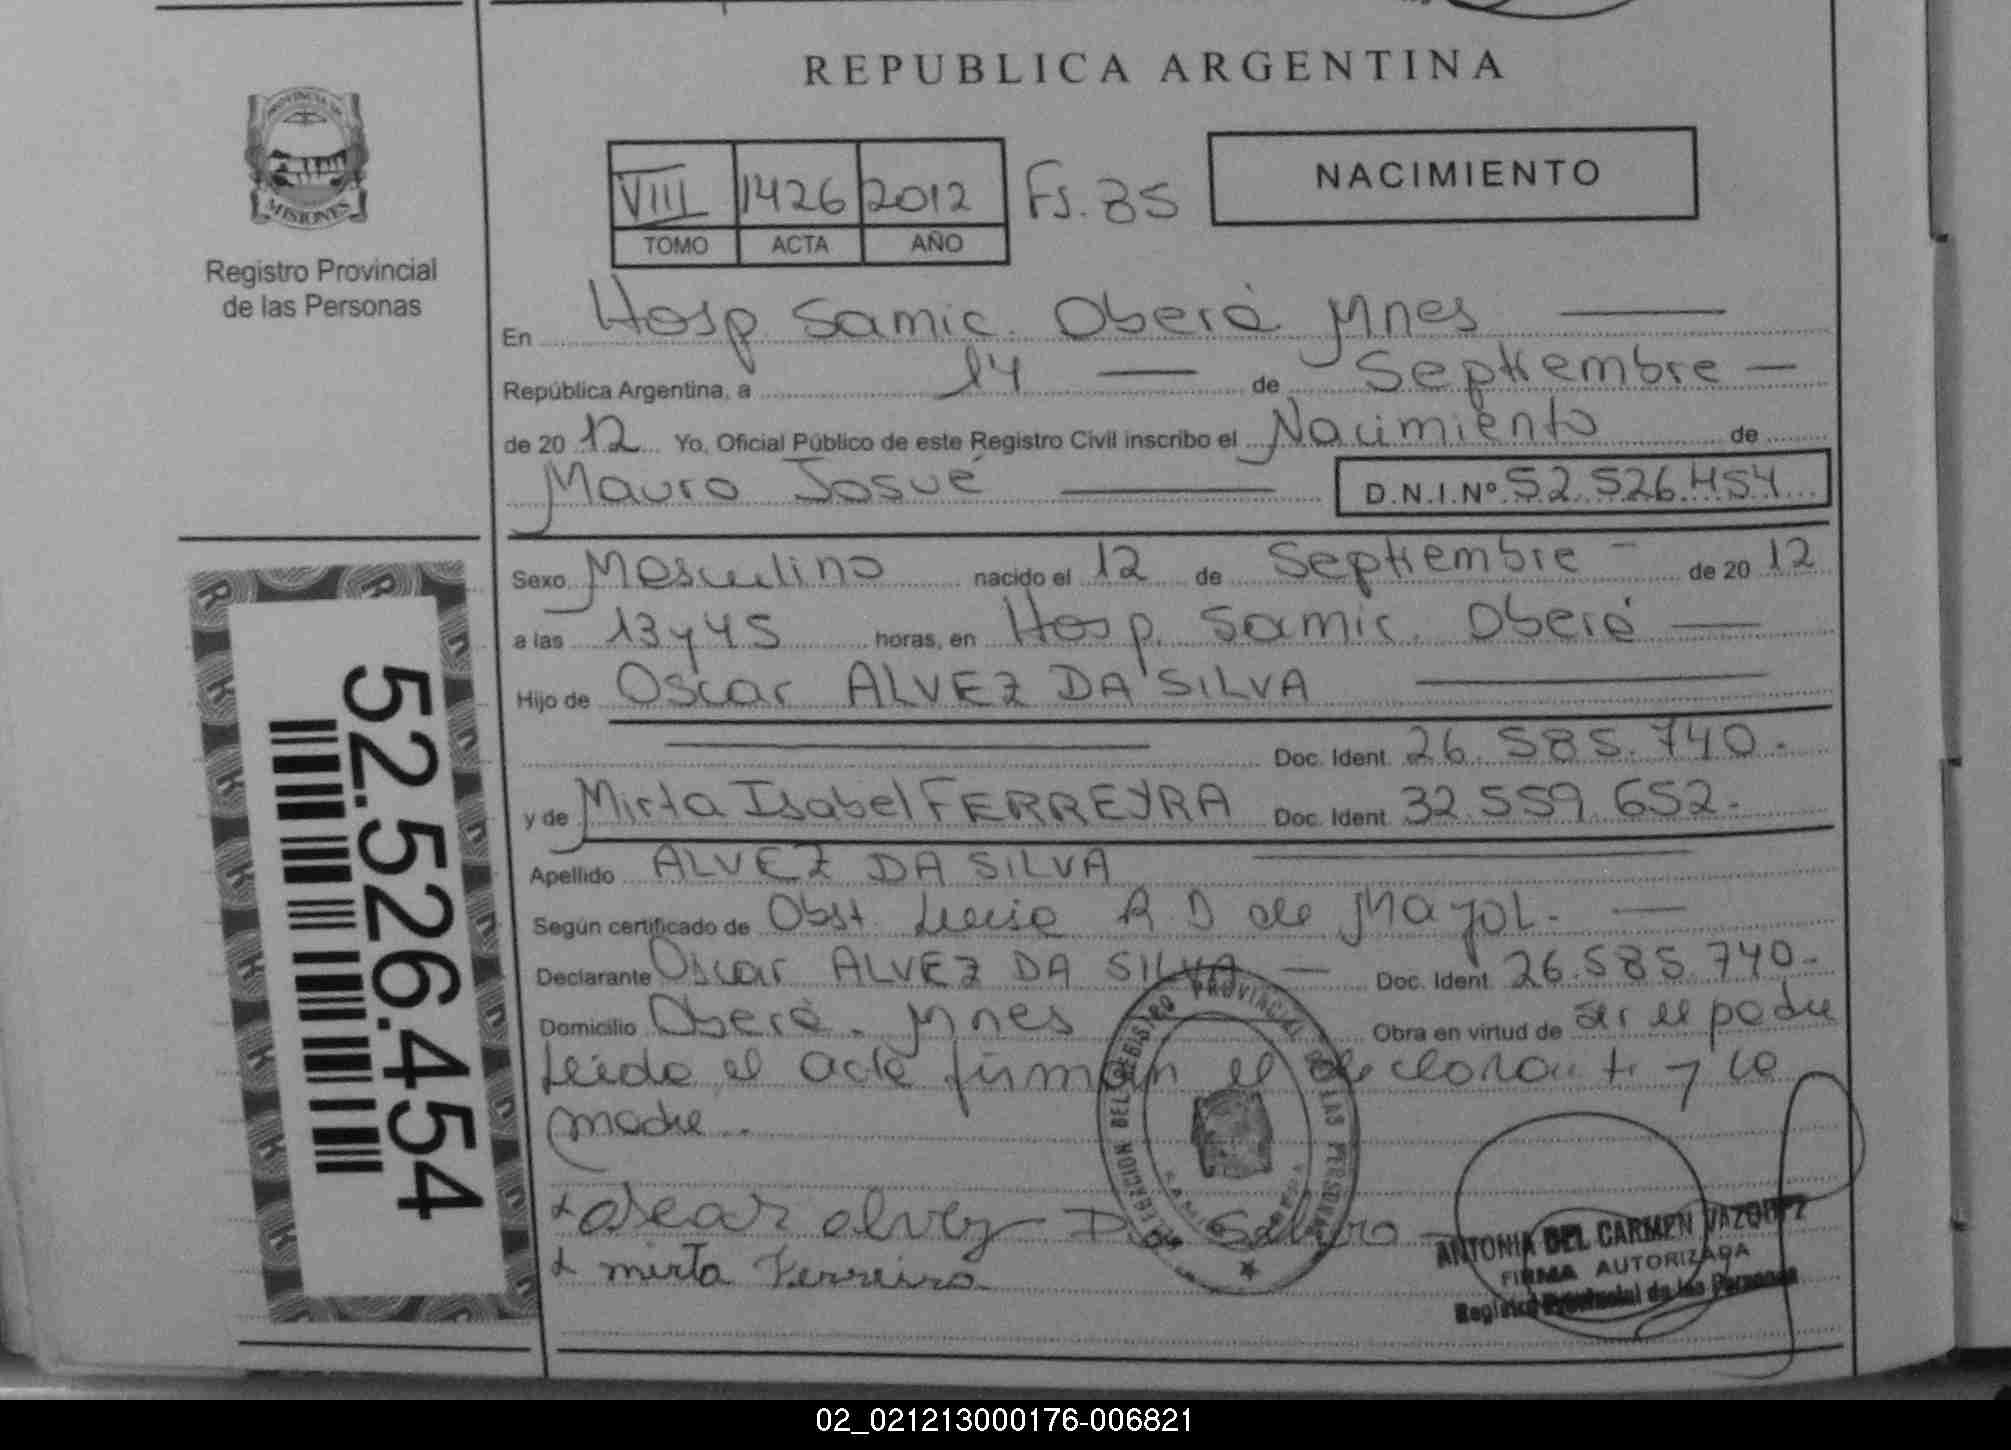 REPUBLICA ARGENTINA
PROVINCIA DE
MISIONES
Registro Provincial
de las Personas
VIII 1426 2012 Fs. 85
TOMO ACTA AÑO
NACIMIENTO
En Hosp Samic. Oberá Mnes
República Argentina, a 14 de Septiembre
de 20 12 Yo, Oficial Público de este Registro Civil inscribo el Nacimiento de
Mauro Josué D.N.I.Nº 52.526.454
Sexo Masculino nacido el 12 de Septiembre de 20 12
a las 13 y 45 horas, en Hosp. Samic. Oberá
Hijo de Oscar ALVEZ DA SILVA
Doc. Ident. 26.585.740.
y de Mirta Isabel FERREYRA Doc. Ident. 32.559.652.
Apellido ALVEZ DA SILVA
Según certificado de Obst. Lucia R D de Mayol.
Declarante Oscar ALVEZ DA SILVA Doc. Ident. 26.585.740.
Domicilio Oberá. Mnes Obra en virtud de ser el padre
Leida el acta firman el declarante y la
madre.
52.526.454
REGISTRO PROVINCIAL DE LAS PERSONAS
oscar alvez Da Silva
mirta Ferreira
ANTONIA DEL CARMEN VAZQUEZ
FIRMA AUTORIZADA
Registro Provincial de las Personas
02_021213000176-006821